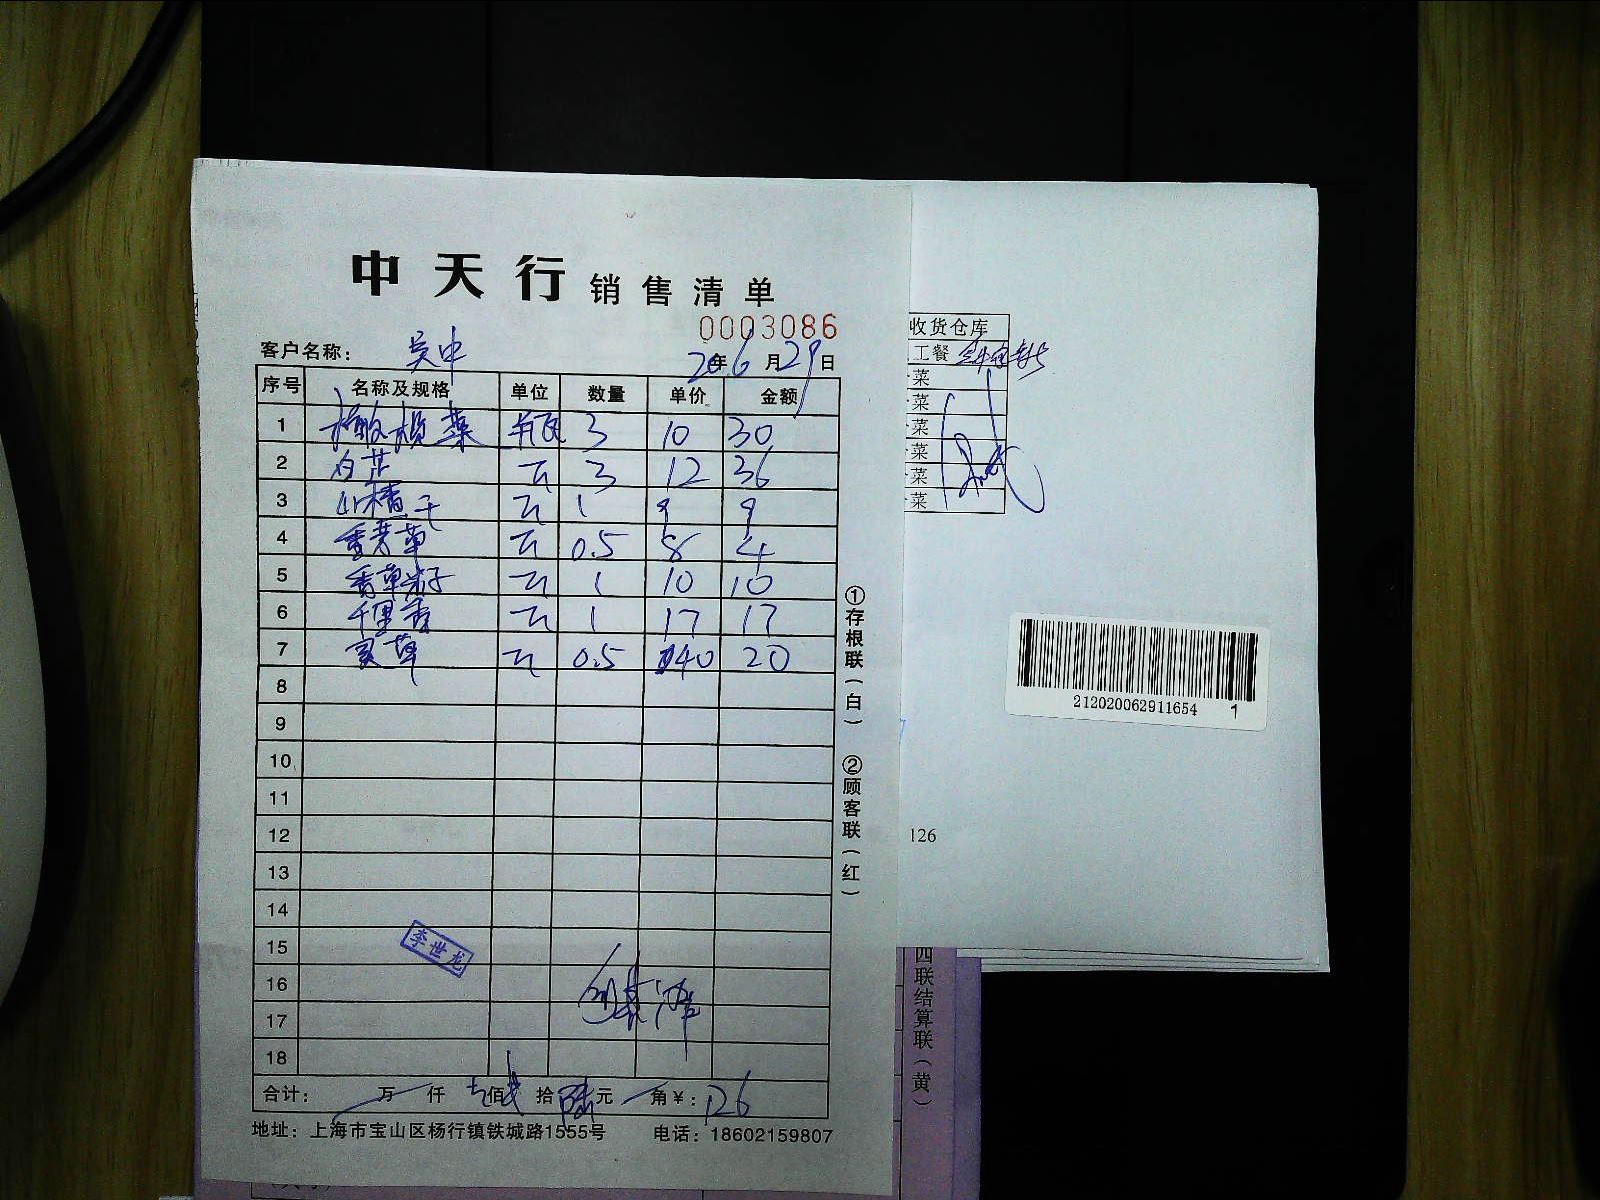 中天行 销售清单
0003086
客户名称： 吴中 20年6月29日
序号 名称及规格 单位 数量 单价 金额
1 橄榄菜 瓶 3 10 30
2 白芷 斤 3 12 36
3 山楂干 斤 1 9 9
4 香茅草 斤 0.5 8 4
5 香草籽子 斤 1 10 10
6 千里香 斤 1 17 17
7 灵草 斤 0.5 40 20
8
9
10
11
12
13
14
15
16
17
18
李世龙
合计： 万 仟 壹佰贰拾陆元 角￥：126
地址：上海市宝山区杨行镇铁城路1555号 电话：18602159807
①存根联（白） ②顾客联（红）
收货仓库
工餐
菜
菜
菜
菜
菜
菜
212020062911654 1
126
四联结算联（黄）